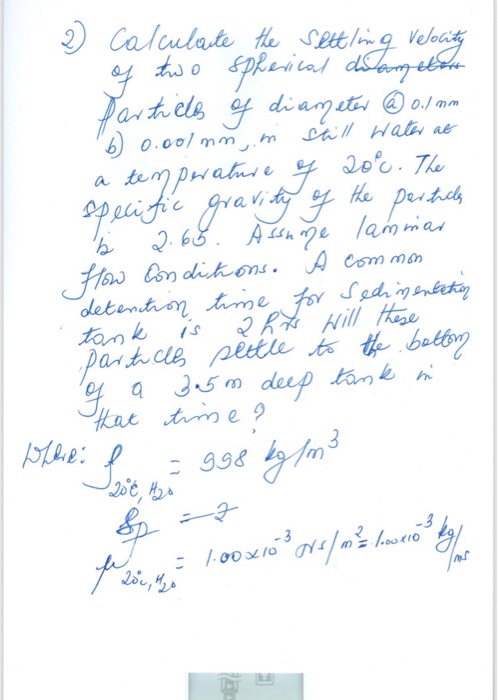 2) Calculate the settling velocity
of two spherical diameters
particles of diameter @ 0.1mm
b) 0.001mm, in still water at
a temperature of 20°C. The
specific gravity of the particles
is 2.65. Assume laminar
flow conditions. A common
detention time for sedimentation
tank is 2hrs will these
particles settle to the bottom
of a 3.5m deep tank in
that time?
Where: ρ20°C, H2O = 998 kg/m³
Sp = ?
μ20°C, H2O = 1.00x10⁻³ Ns/m² = 1.00x10⁻³ kg/ms